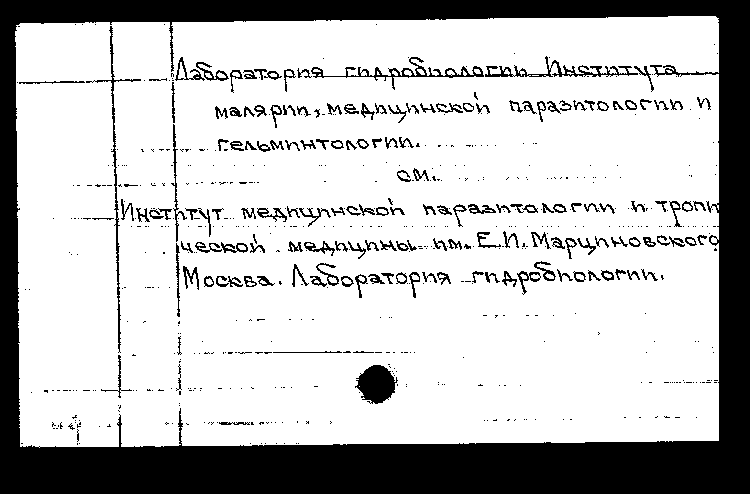 Лаборатория гидробиологии Института
малярии, медицинской паразитологии и
гельминтологии.
см.
Институт медицинской паразитологии и тропи
ческой медицины им. Е.И. Марциновского
Москва. Лаборатория гидробиологии.